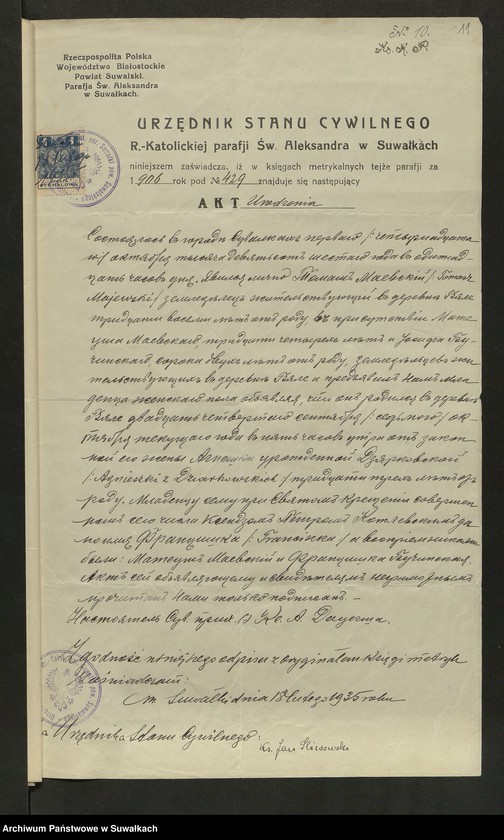 № 10.
11
Ks. M. P.
Rzeczpospolita Polska
Województwo Białostockie
Powiat Suwalski.
Parafja Św. Aleksandra
w Suwałkach.
URZĘDNIK STANU CYWILNEGO
R.-Katolickiej parafji Św. Aleksandra w Suwałkach
niniejszem zaświadcza, iż w księgach metrykalnych tejże parafji za
1 906 rok pod № 429 znajduje się następujący
AKT Urodzenia
Состоялось в городе Сувалках первого /:четырнадцата
го:/ октября тысяча девятьсот шестого года в одиннад
цать часов дня. Явился лично Томаш Маевский /:Tomasz
Majewski:/ земледелец жительствующий в деревне
тридцати восьми лет от роду в присутствии Мате
уша Маевского тридцати четырех лет и Иосифа Бу
чинского, сорока двух лет от роду, земледельцев жи
тельствующих в деревне и предъявил нам мла
денца женского пола объявляя, что он родился в деревне
двадцать четвертого сентября /:седьмого:/ ок
тября текущего года в пять часов утра от закон
ной его жены Агнешки урожденной Дзярковской
/:Agnieszki z Dziarkowskich:/ тридцати трех лет от
роду. Младенцу сему при Святом Крещении совершен
ном сего числа Ксендзом Петром Котлевским да
но имя Францишка /:Franciszka:/ а восприемниками
были: Матеуш Маевский и Францишка Бучинская.
Акт сей объявляющему и свидетелям неграмотным
прочитан Нами только подписан. –
Настоятель Сув. прих. Кс. А.
Zgodność niniejszego odpisu z oryginałem księgi metryk
poświadczam:
m. Suwałki dnia 18 lutego 1935 roku
Urzędnik Stanu Cywilnego:
Ks. Jan
Archiwum Państwowe w Suwałkach